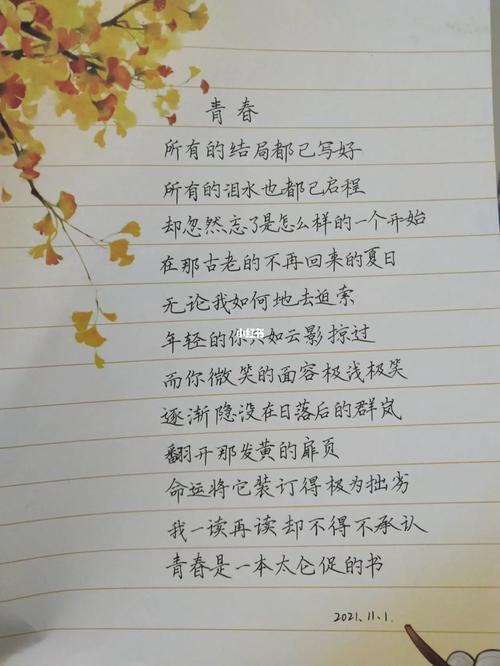 青春
所有的结局都已写好
所有的泪水也都已启程
却忽然忘了是怎么样的一个开始
在那古老的不再回来的夏日
无论我如何地去追索
年轻的你只如云影掠过
而你微笑的面容极浅极笑
逐渐隐没在日落后的群岚
翻开那发黄的扉页
命运将它装订得极为拙劣
我一读再读却不得不承认
青春是一本太仓促的书
2021.11.1.
小红书